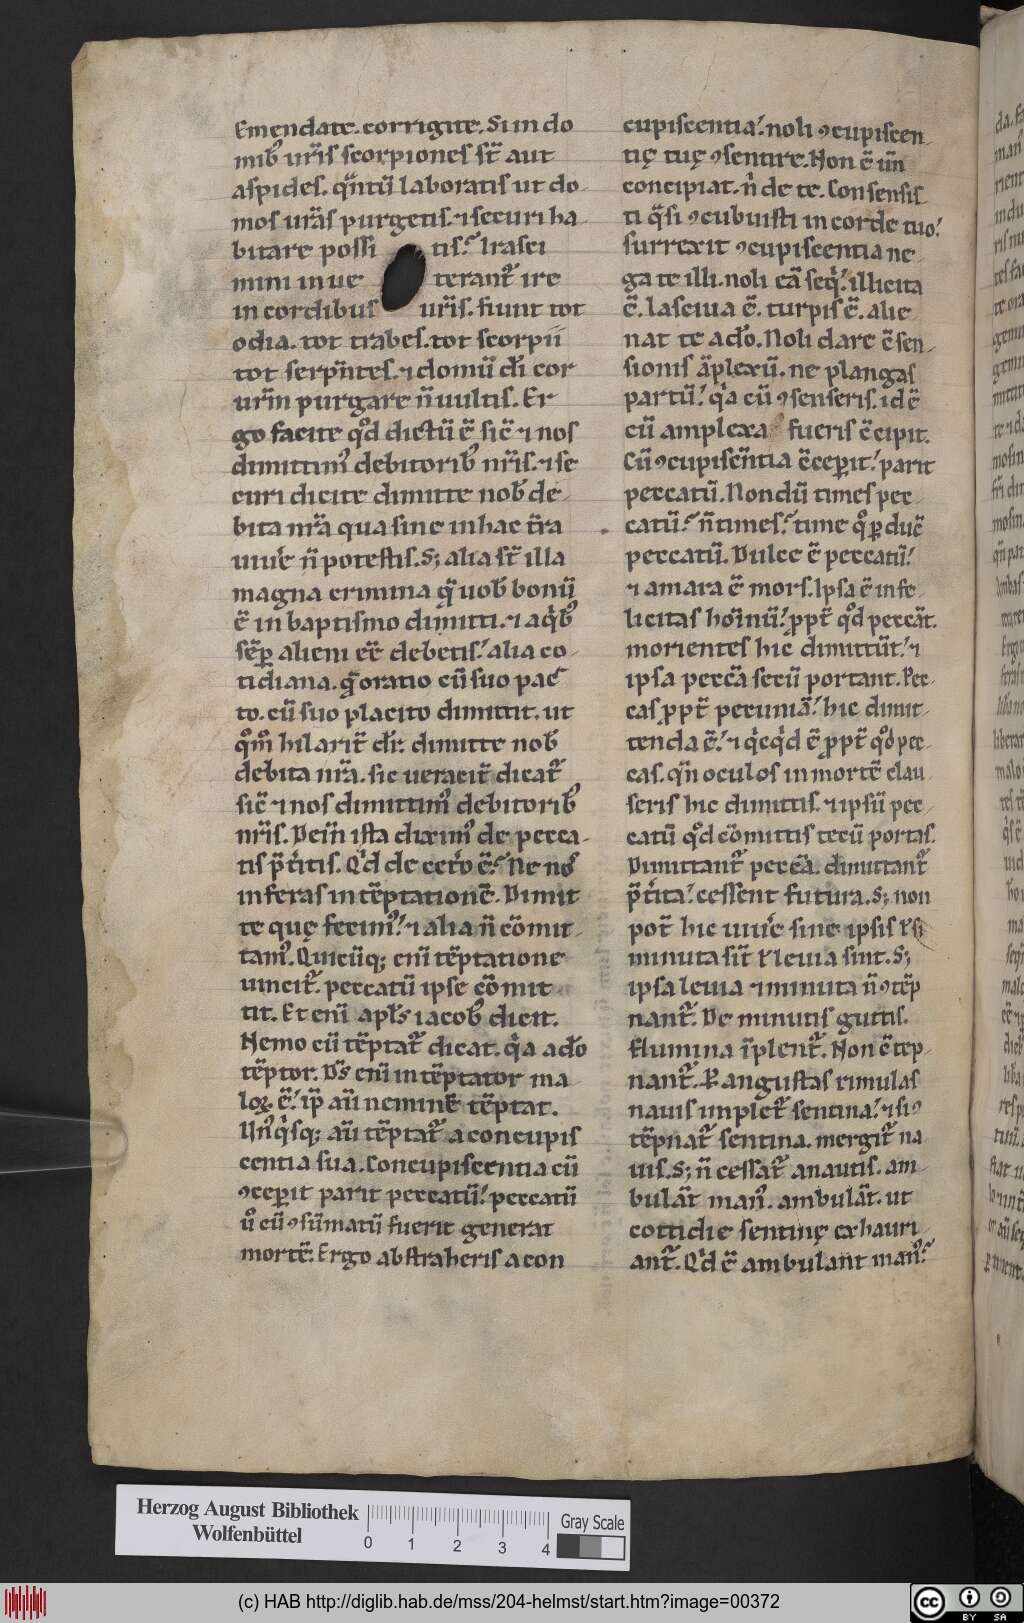 Emendate. corrigite. Si in do
mib᷒ ur̃is scorpiones st̃ aut
aspides. qñtũ laboratis ut do-
mos urãs purgetis. ⁊ securi ha
bitare possi tis? Irasci
mini in ue terant᷑ ire
in cordibus ur̃is. fiunt tot
odia. tot trabes. tot scorpii
tot serpñtes. ⁊ domũ dĩ cor
urm̃ purgare ñ uultis. Er
go facite qd̛ dictũ ẽ sic̃ ⁊ nos
dimittim᷒ debitorib᷒ nr̃is. ⁊ se
curi dicite dimitte nob̃ de-
bita nrã qua sine in hac tr̃a
uiue̛ ñ potestis. S; alia st̃ illa
magna crimina q̃ uob̃ bonũ
ẽ in baptismo dimitti. ⁊ a qib᷒
sẽp alieni eẽ debetis. alia co-
tidiana. q̃ oratio cũ suo pac
to. cũ suo placito dimittit. ut
qm̊o hilarit̃ dr̃: dimitte nob̃
debita nrã. sic ueracit̃ dicat᷑
sic̃ ⁊ nos dimittim᷒ debitorib᷒
nr̃is. Dein̄ ista dixim᷒ de pecca-
tis p̃titis. Qid de cet̃o ẽ? Ne nos
inferas in tẽptationẽ. Dimit
te quę fecim᷒. ⁊ alia ñ cõmit-
tam᷒. Quicũq; eni᷃ tẽptatione
uincit᷑. peccatũ ipse cõmit
tit. Et eni᷃ apl̃s iacob᷒ dicit.
Nemo cũ tẽptat᷑ dicat. qa̛ a dơ
tẽptor. Ds̃ eni᷃ intẽptator ma-
loꝝ ẽ. ip̃ aũ neminẽ tẽptat.
Un᷒qisq; aũ tẽptat᷑ a concupis
centia sua. Concupiscentia cũ
ꝯceperit parit peccatũ. peccatũ
ưo cũ ꝯsũmatũ fuerit generat
mortẽ. Ergo abstraheris a con
cupiscentia. noli ꝯcupiscen-
tię tuę ꝯsentire. Non ẽ uñ
concipiat. n̛ de te. Consensis
ti q̃si ꝯcubuisti in corde tuo.
surrexit ꝯcupiscentia ne-
ga te illi. noli eã seq̛. illicita
ẽ. lasciua ẽ. turpis ẽ. alie
nat te a dơ. Noli dare ꝯsen-
sionis ãplexũ. ne plangas
partũ. qa̛ cũ ꝯsenseris. id ẽ
cũ amplexa fueris ꝯcipit.
Cũ ꝯcupiscñtia ꝯceperit. parit
peccatũ. Nondũ times pec-
catũ? ñ times? time qơ ꝑducit
peccatũ. Dulce ẽ peccatũ.
⁊ amara ẽ mors. Ipsa ẽ infe-
licitas hoĩnũ. ꝓpt̃ qd̛ peccãt.
morientes hic dimittũt. ⁊
ipsa pecc̃a secũ portant. Pec-
cas ꝓpt̃ pecuniã. hic dimit-
tenda ẽ. ⁊ qicqid ẽ ꝓpt̃ qd̛ pec-
cas. qñ oculos in mortẽ clau
seris hic dimittis. ⁊ ipsũ pec-
catũ qd̛ cõmittis tecũ portas.
Dimittant᷑ pecc̃a. dimittant᷑
p̃tita. cessent futura. S; non
pot̃ hic uiue̛ sine ipsis & si
minuta sĩt & leuia sint. S;
ipsa leuia ⁊ minuta ñ ꝯtẽp-
nant᷑. De minutis guttis.
flumina ĩplent᷑. Non ꝯtẽp-
nant᷑. P angustas rimulas
nauis implet᷑ sentina. ⁊ si ꝯ
tẽpnat᷑ sentina. mergit᷑ na
uis. S; ñ cessat᷑ a nautis. am-
bulãt man᷒. ambulãt. ut
cottidie sentinę exhauri-
ant᷑. Qid ẽ ambulant man᷒?
Herzog August Bibliothek
Wolfenbüttel
0 1 2 3 4
Gray Scale
(c) HAB http://diglib.hab.de/mss/204-helmst/start.htm?image=00372
cc BY SA